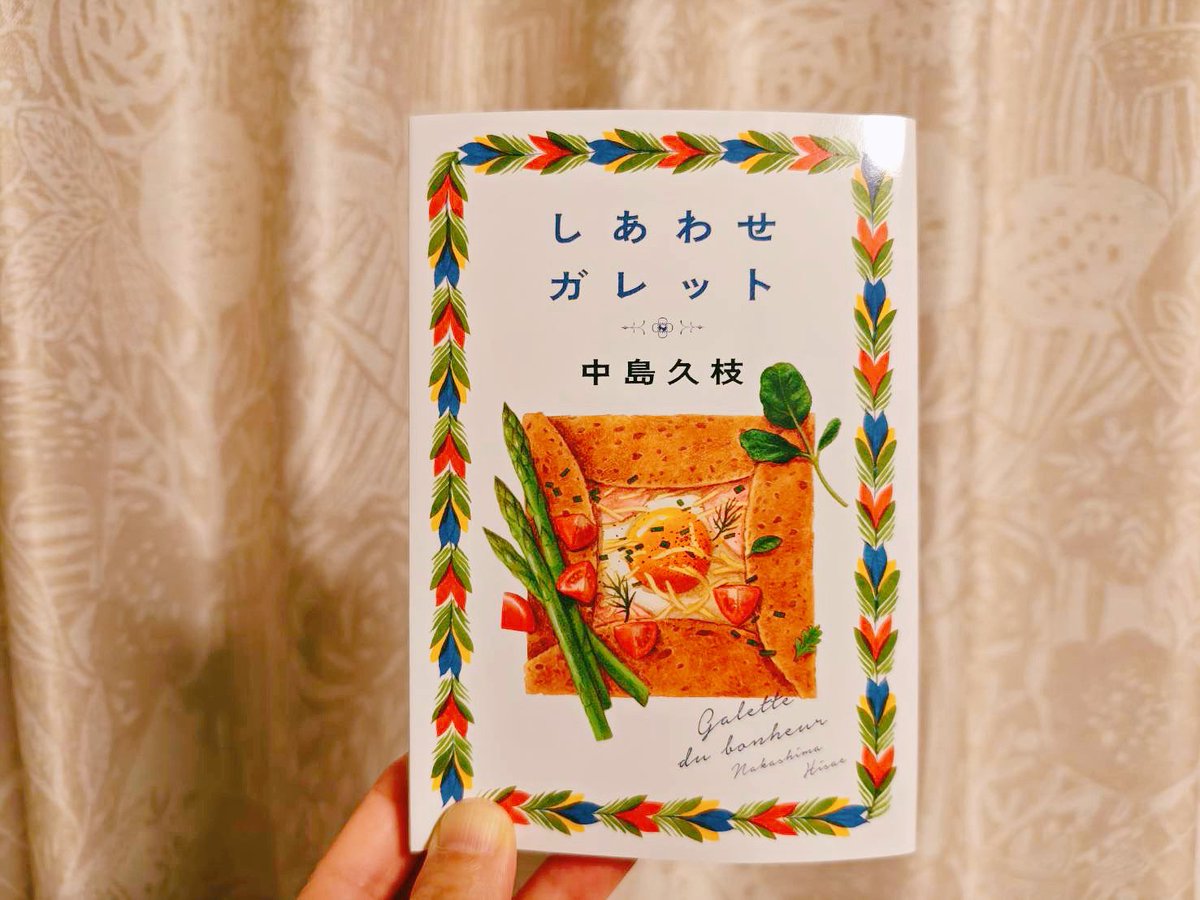 しあわせ
ガレット
中島久枝
Galette
du bonheur
Nakashima
Hisae